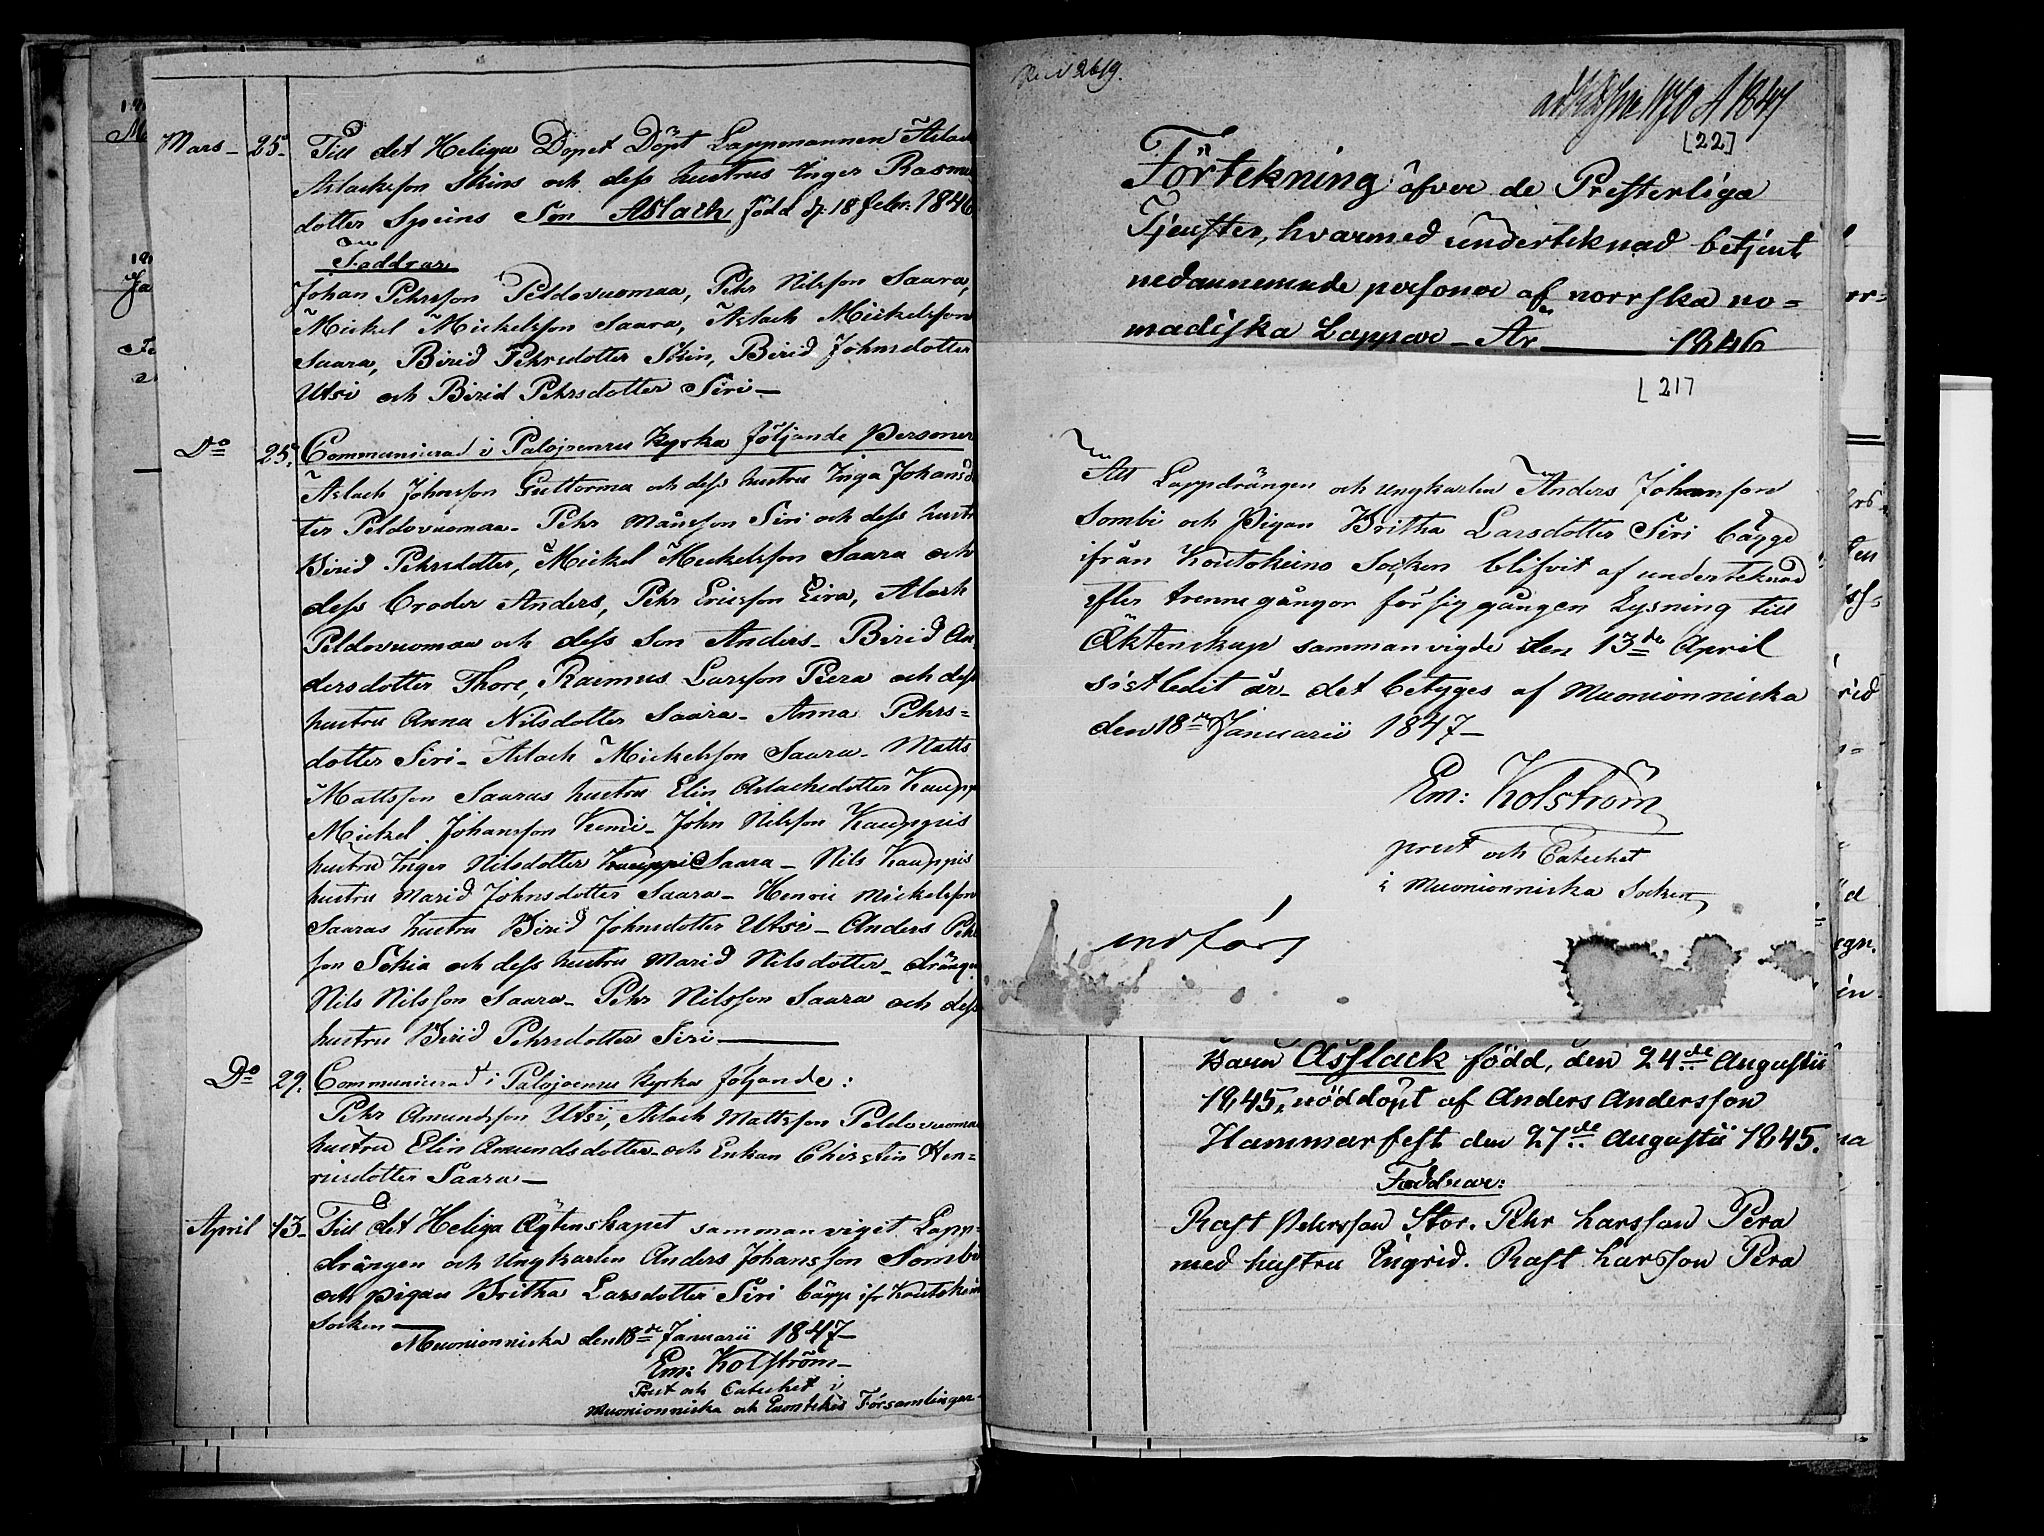 Mars - 25. Till det Heliga Dopet Döpt Lappmannen Aslack
Aslacksson Skins och dess hustrus Inger Rasmus
dotter Speins Son Aslack född d. 18 febr. 1846
Faddrar
Johan Pehrsson Peldovuomaa, Pehr Nilsson Saara,
Mickel Mickelsson Saara, Aslach Mickelsson
Saara, Birid Pehrsdotter Skin, Birid Johnsdotter
Utsi och Birid Pehrsdotter Siri -
Do 25. Communicerad i Palojoensu Kyrka följande Personer
Aslach Johnsson Guttorma och dess hustru Inga Johansd
ter Peldovuomaa - Pehr Månsson Siri och dess hustr
Birid Pehrsdotter, Mickel Mickelsson Saara och
dess broder Anders, Pehr Ericsson Eira, Aslach
Peldovuomaa och dess Son Anders - Birid An
dersdotter Thore, Rasmus Larsson Piera och dess
hustru Anna Nilsdotter Saara - Anna Pehrs=
dotter Siri - Aslach Mickelsson Saara - Matts
Mattsson Saaras hustru Elin Aslachsdotter Kaupp
Mickel Johansson Kemi - John Nilsson Kauppis
hustru Inger Nilsdotter Kauppi Saara - Nils Kauppis
hustru Marid Johnsdotter Saara - Henric Mickelsson
Saaras hustru Birid Johnsdotter Utsi - Anders Pehr
son Sokia och dess hustru Marid Nilsdotter - dränge
Nils Nilsson Saara - Pehr Nilsson Saara och dess
hustru Birid Pehrsdotter Siri
Do 29. Communicerad i Palojoensu Kyrka följande:
Pehr Amundsson Utsi, Aslach Mattsson Peldovuoma
hustru Elin Amundsdotter - och Enkan Christin Hen=
ricsdotter Saara -
April 13. Till det Heliga Ägtenskapet sammanviget Lapp=
drängen och Ungkarlen Anders Johansson Sombi
och pigan Britha Larsdotter Siri bägge ifr Koutokeino
Socken
Muonionniska den 18de Januarii 1847 -
Em: Kolström -
Prest och Catechet i
Muonionniska och Enontekis Församlingar -
2619.
[22]
Förtekning öfver de Presterliga
Tjenster, hvarmed undertecknad betjent
nedannemnde personer af norrska no=
madiska Lappar - År 1846
[21]
Att Lappdrängen och ungkarlen Anders Johansson
Sombi och Pigan Britha Larsdotter Siri bägge
ifrån Koutokeino Socken blifvit af undertecknad
efter trenne gångor försiggången Lysning till
Äktenskap sammanvigde den 13de April
sistledit år - det betyges af Muonionniska
den 18de Januarii 1847 -
Em: Kolström
prest och Catechet
i Muonionniska Socken
indförs
Barn Asslack född, den 24de Augustii
1845, nöddöpt af Anders Andersson
Hammarfest den 27de Augustii 1845.
Faddrar:
Rast Pehrsson Stor. Pehr Larsson Pera
med hustru Ingrid. Rast Larsson Pera